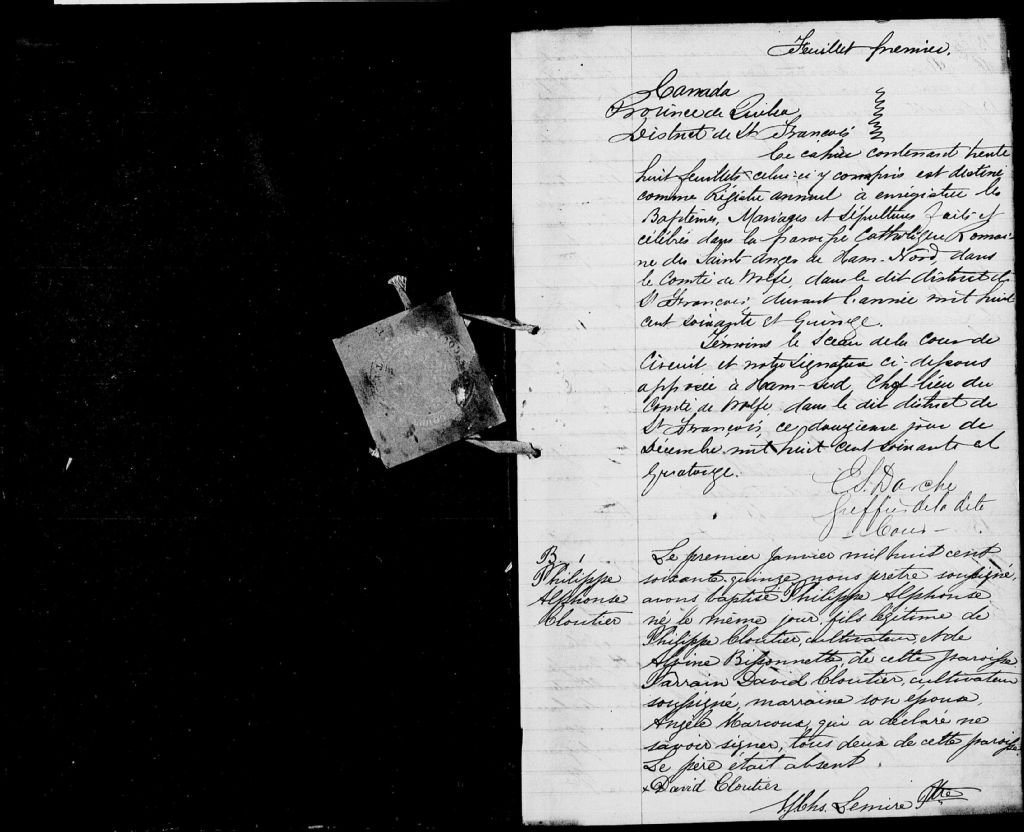 Feuillet premier.
Canada
Province de Québec
District de St François
Ce cahier contenant trente
huit feuillets celui-ci y compris est destiné
comme Régistre annuel à enrégistrer les
Baptêmes, Mariages et Sépultures faits et
célébrés dans la paroisse Catholique Romai-
ne des Saints Anges de Ham-Nord, dans
le Comté de Wolfe, dans le dit district de
St François, durant l'année mil huit
cent soixante et quinze.
Témoins le Sceau de la Cour de
Circuit et notre signature ci-dessous
apposée à Ham-Sud, Chef lieu du
Comté de Wolfe, dans le dit district de
St François, ce douzième jour de
Décembre mil huit cent soixante et
quatorze.
Greffier de la dite
Cour
B. 1
Philippe
Alphonse
Cloutier
Le premier Janvier mil huit cent
soixante quinze, nous prêtre soussigné,
avons baptisé Philippe Alphonse
né le même jour, fils légitime de
Philippe Cloutier, cultivateur, et de
Bissonnette, de cette paroisse.
Parrain David Cloutier, cultivateur
soussigné, marraine son épouse,
Angèle Marcoux, qui a déclaré ne
savoir signer, tous deux de cette paroisse.
Le père était absent.
David Cloutier
Lemire Ptre